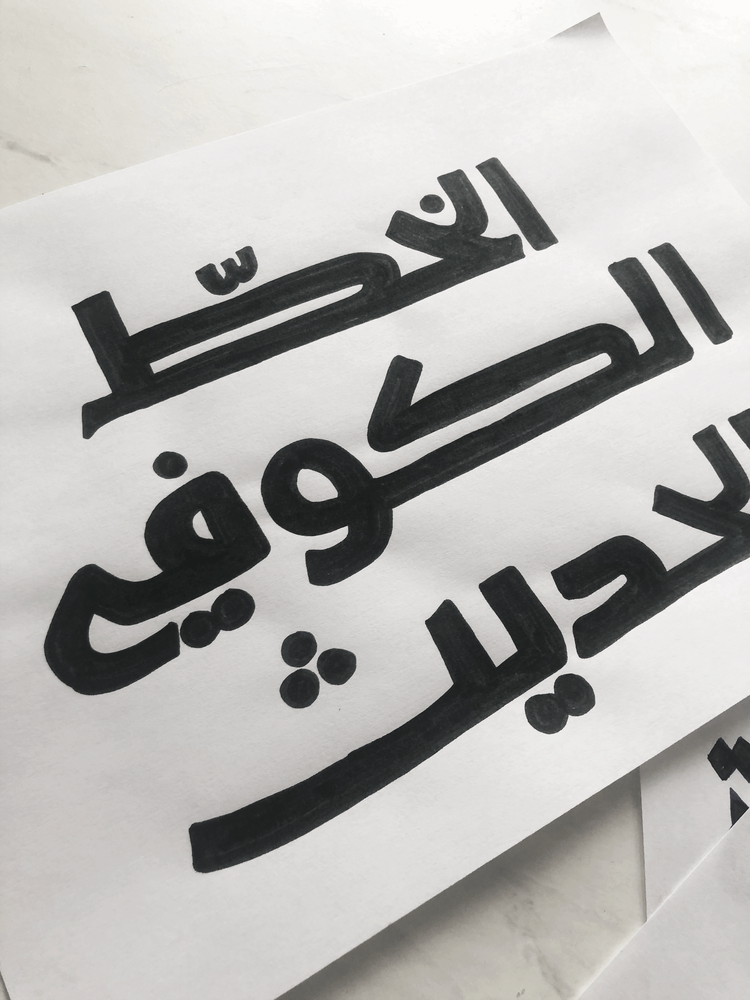 الخطّ
الكوفي
الحديث